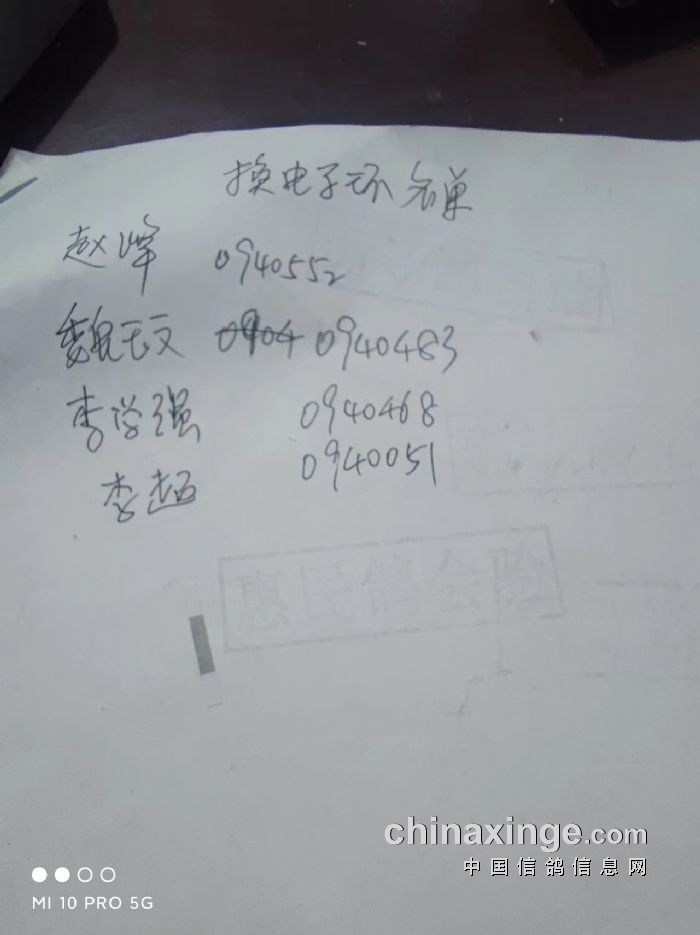 换电子环名单
赵峰 0940552
魏玉文 0904 0940483
李学强 0940468
李超 0940051
惠民鸽会验
chinaxinge.com
中国信鸽信息网
MI 10 PRO 5G